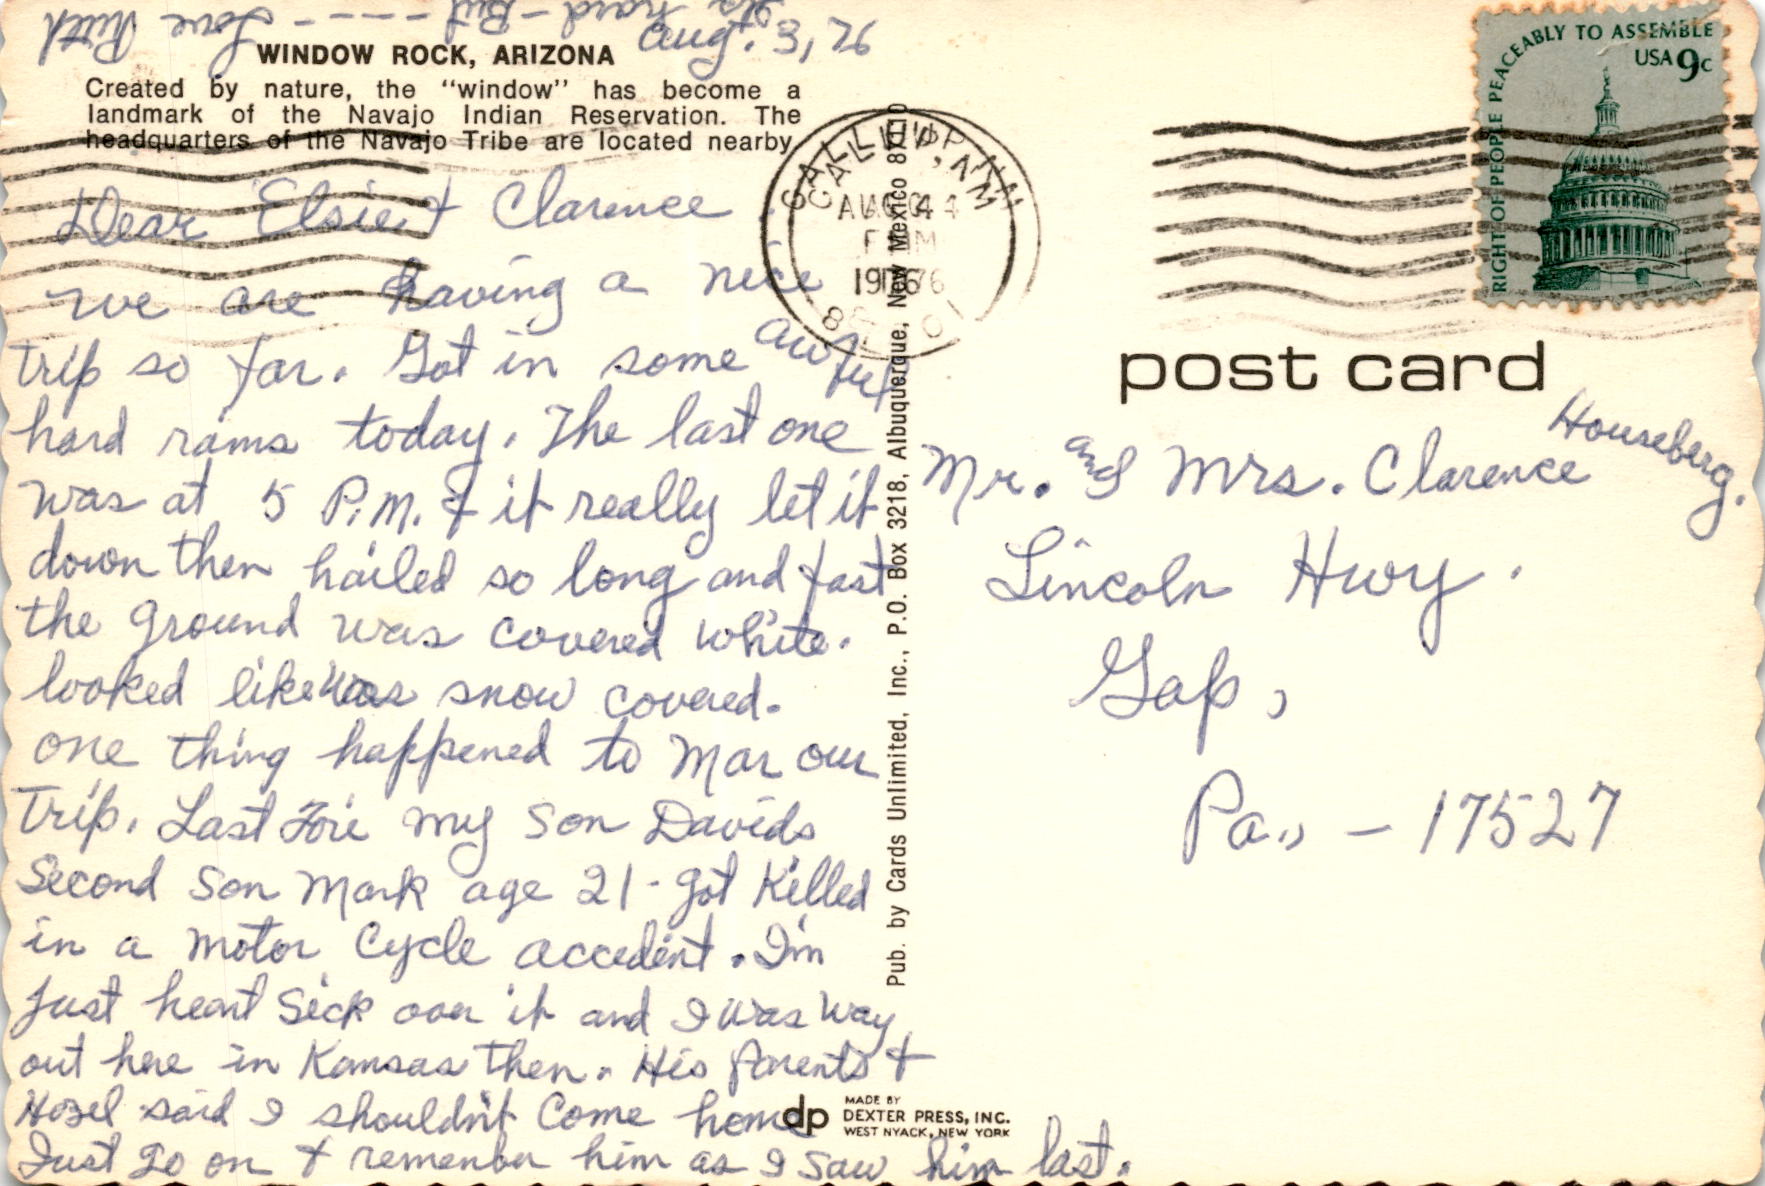 Aug. 3, 76
WINDOW ROCK, ARIZONA
Created by nature, the "window" has become a
landmark of the Navajo Indian Reservation. The
headquarters of the Navajo Tribe are located nearby.
Dear Elsie & Clarence
we are having a nice
trip so far. Got in some awful
hard rains today. The last one
was at 5 P.M. & it really let it
down then hailed so long and fast
the ground was covered white.
looked like was snow covered.
one thing happened to Mar our
Trip. Last Fri my son Davids
Second son Mark age 21 - got Killed
in a motor Cycle accedent. I'm
Just heart Sick over it and I was way
out here in Kansas then. His parents &
Hazel said I shouldn't Come home
Just go on & remember him as I saw him last.
Its hard - But - - - - Love Ruth
Pub. by Cards Unlimited, Inc., P.O. Box 3218, Albuquerque, New Mexico 87110
dp
MADE BY
DEXTER PRESS, INC.
WEST NYACK, NEW YORK
GALLUP, NM
AUG 4
PM
1976
RIGHT OF PEOPLE PEACEABLY TO ASSEMBLE
USA 9c
post card
Mr. and Mrs. Clarence Houseberg.
Lincoln Hwy.
Gap,
Pa., - 17527